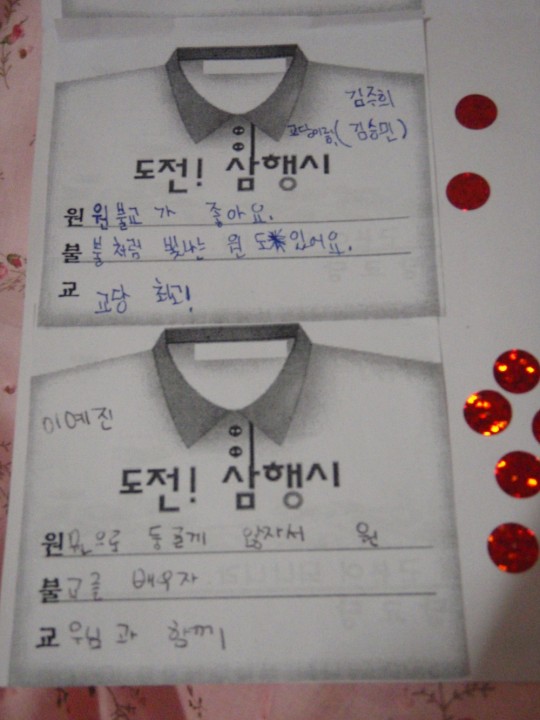 김주희
교당이름(김승민)
도전! 삼행시
원 원불교 가 좋아요.
불 불처럼 빛나는 원 도 있어요.
교 교당 최고!
이예진
도전! 삼행시
원 으로 둥글게 앉자서 원
불교를 배우자
교우님과 함께